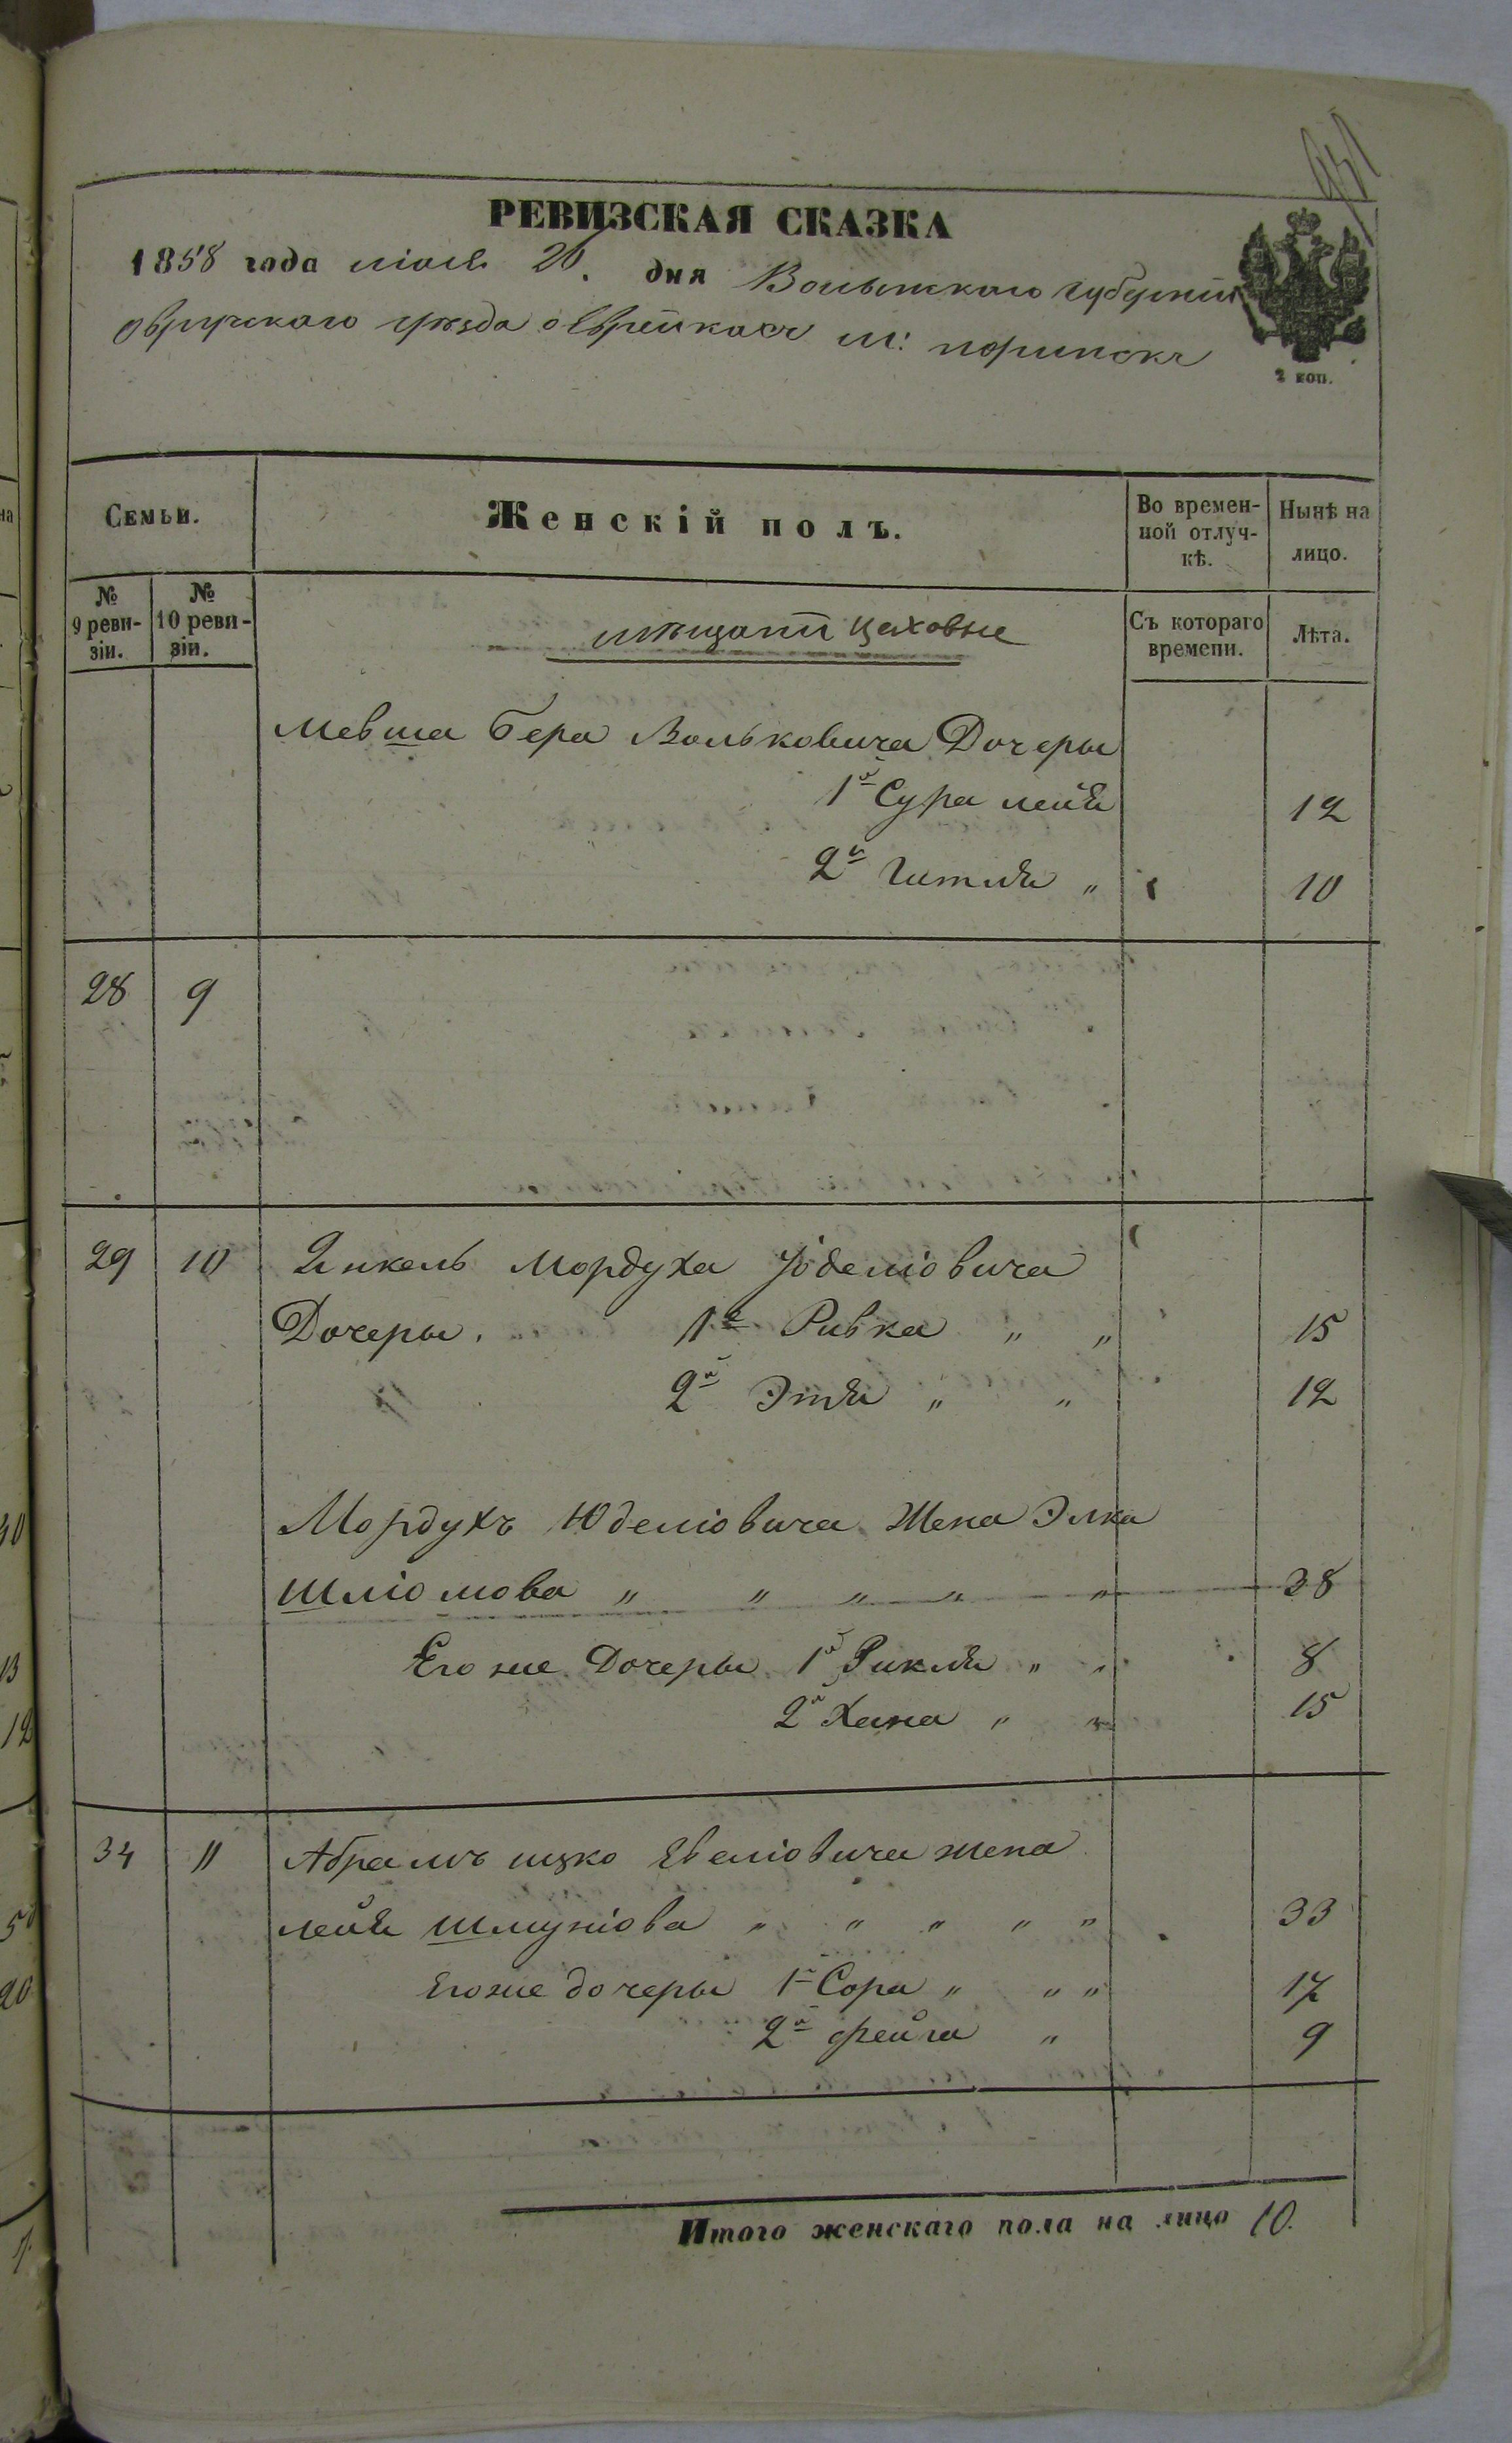 РЕВИЗСКАЯ СКАЗКА
1858 года июля 20. дня Волынского губернии
овручского уезда о Еврейкахъ м: норинскъ
2 коп.
Семьи.
Женскій полъ.
Во времен-
ной отлуч-
кѣ.
Нынѣ на
лицо.
№
9 реви-
зіи.
№
10 реви-
зіи.
мѣщани цеховые
Съ котораго
времени.
Лѣта.
Мевша Бера Вольковича Дочеры
1я Сура лейя 12
2я Гитля „ 10
28 9
29 10 Янкель Мордуха Юделіовича
Дочеры. 1я Ривка „ „ 15
2я Этя „ „ 12
Мордухъ Юделіовича Жена Элка
Шліомова „ „ „ „ „ 38
Его же Дочеры 1я Рикля „ „ 8
2я Хана „ „ 15
34 11 Абрамъ ицко Евеліовича жена
лейя Шмуніова „ „ „ „ „ 33
Его же дочеры 1я Сора „ „ „ 17
2я фейга „ 9
Итого женскаго пола на лицо 10.